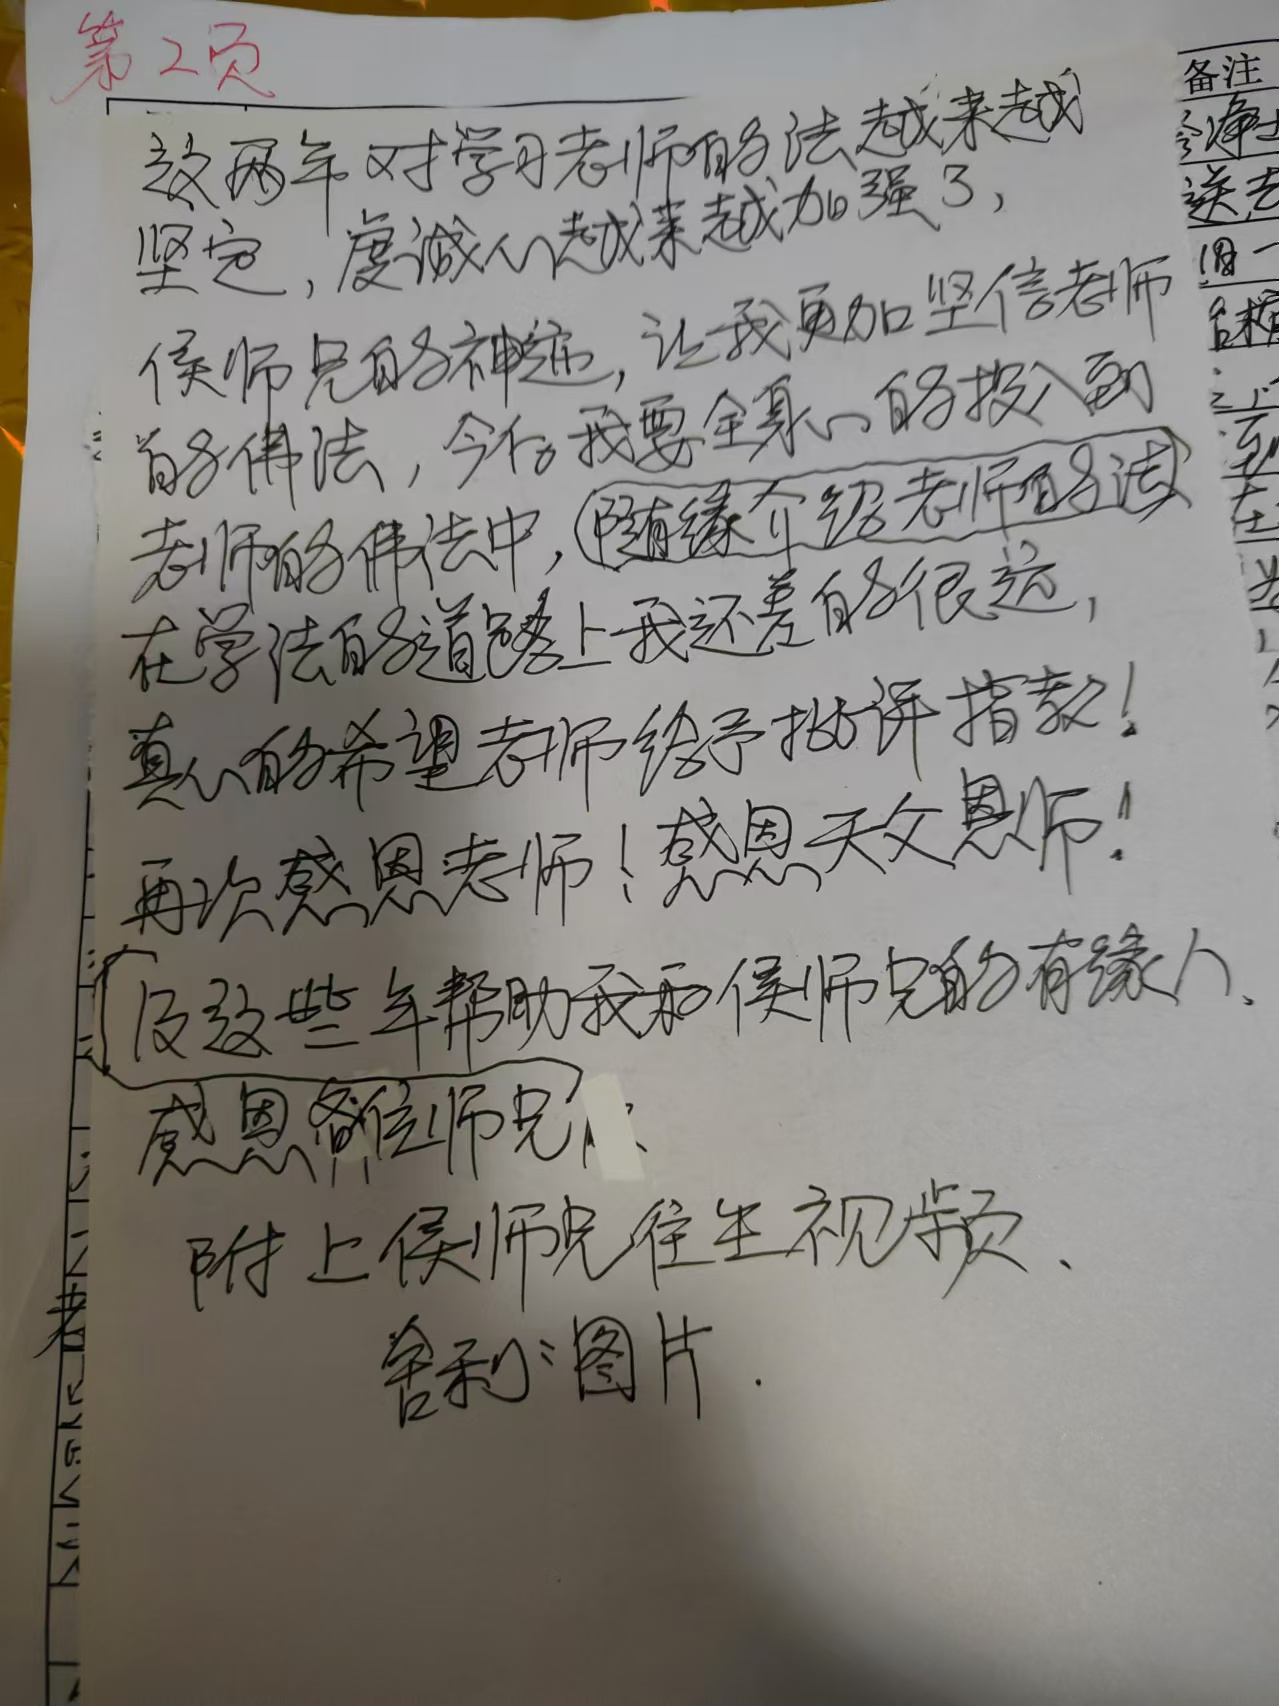 第2页
备注
这两年对学习老师的法越来越
坚定，虔诚心越来越加强了，
侯师兄的神迹，让我更加坚信老师
的佛法，今后我要全身心的投入到
老师的佛法中，随缘介绍老师的法
在学法的道路上我还差的很远，
真心的希望老师给予批评指教！
再次感恩老师！感恩天文恩师！
及这些年帮助我和侯师兄的有缘人、
感恩各位师兄
附上侯师兄往生视频、
舍利子图片.